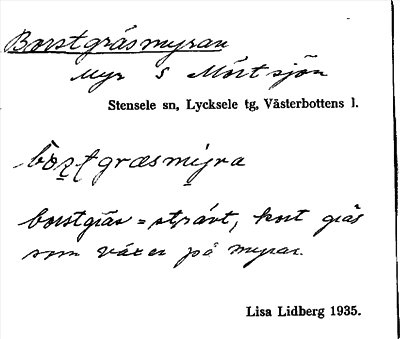 Borstgräsmyran
Myr S Mörtsjön
Stensele sn, Lycksele tg, Västerbottens l.
borstgræsmyra
borstgräs = strävt, kort gräs
som växer på myrar.
Lisa Lidberg 1935.